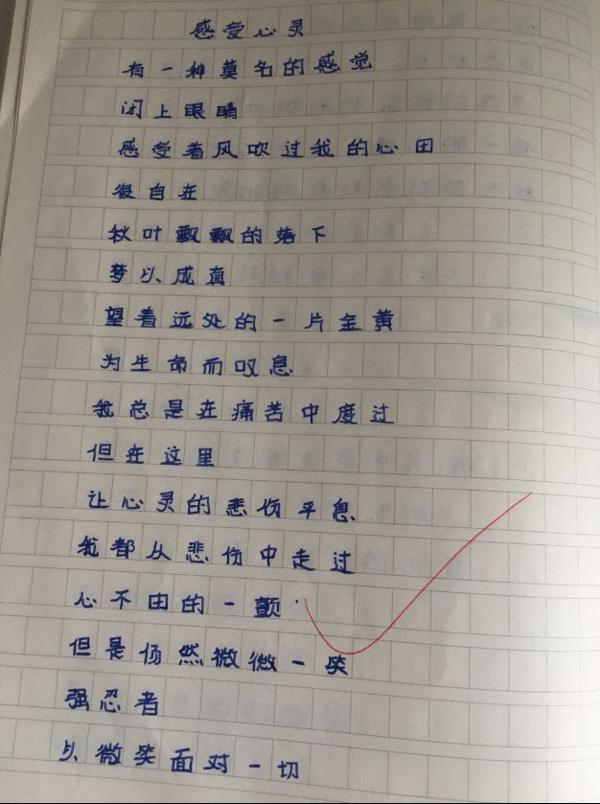 感受心灵
有一种莫名的感觉
闭上眼睛
感受着风吹过我的心田
很自在
秋叶飘飘的落下
梦以成真
望着远处的一片金黄
为生命而叹息
我总是在痛苦中度过
但在这里
让心灵的悲伤平息
我都从悲伤中走过
心不由的一颤
但是仍然微微一笑
强忍者
以微笑面对一切